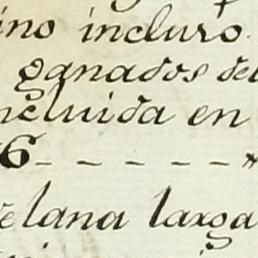 ino incluso
ganados del
ncluida en
6 - - - - - "
de lana larga